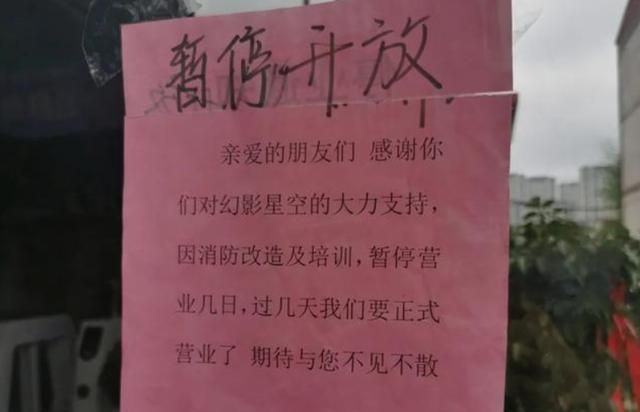 暂停开放
亲爱的朋友们 感谢你
们对幻影星空的大力支持，
因消防改造及培训，暂停营
业几日，过几天我们要正式
营业了 期待与您不见不散